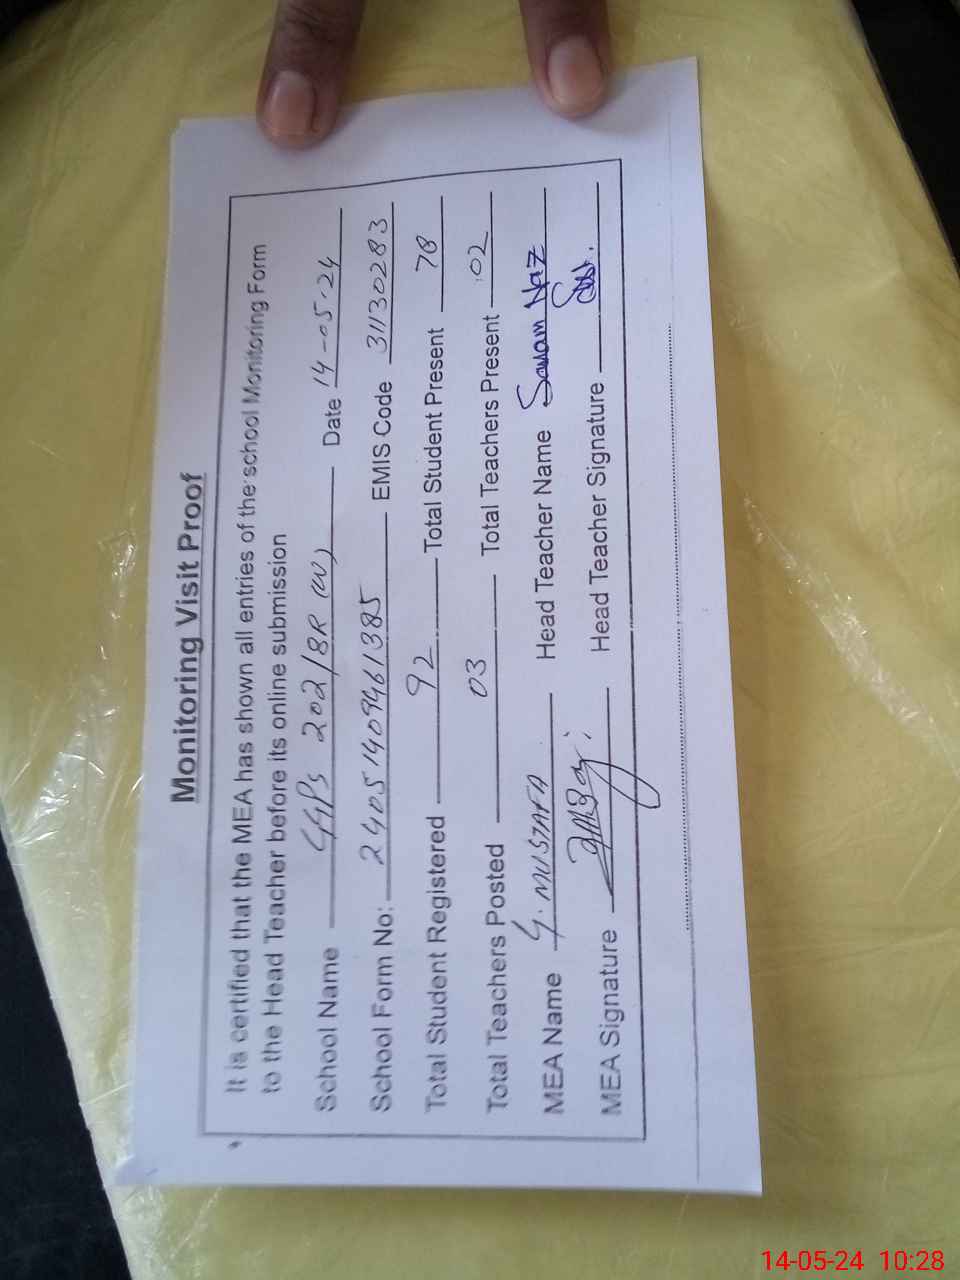 Monitoring Visit Proof
It is certified that the MEA has shown all entries of the school Monitoring Form
to the Head Teacher before its online submission
School Name GPS 202/8R (W) Date 14-05-24
School Form No: 24051409461385 EMIS Code 31130283
Total Student Registered 92 Total Student Present 78
Total Teachers Posted 03 Total Teachers Present 02
MEA Name G. MUSTAFA Head Teacher Name Sanam Naz
MEA Signature Head Teacher Signature
14-05-24 10:28